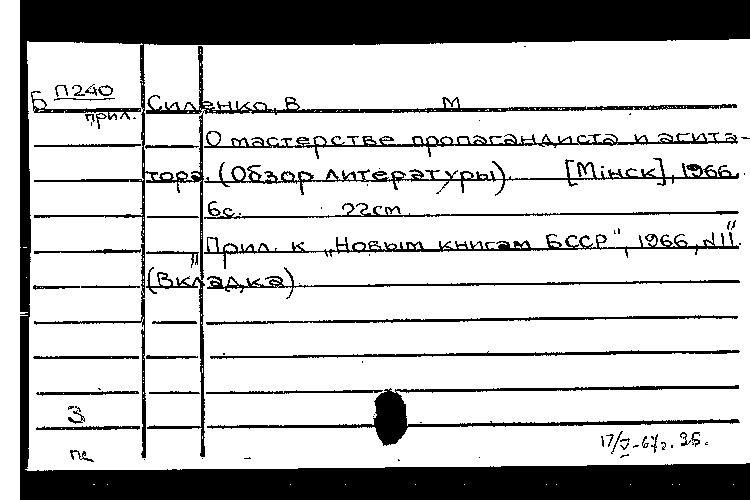 Б П240
прил.
Силенко, В М
О мастерстве пропагандиста и агита-
тора. (Обзор литературы). [Мінск], 1966.
6с. 22cm
Прил. к „Новым книгам БССР", 1966, №11".
"(Вкладка)
3
пе
17/V-67г.